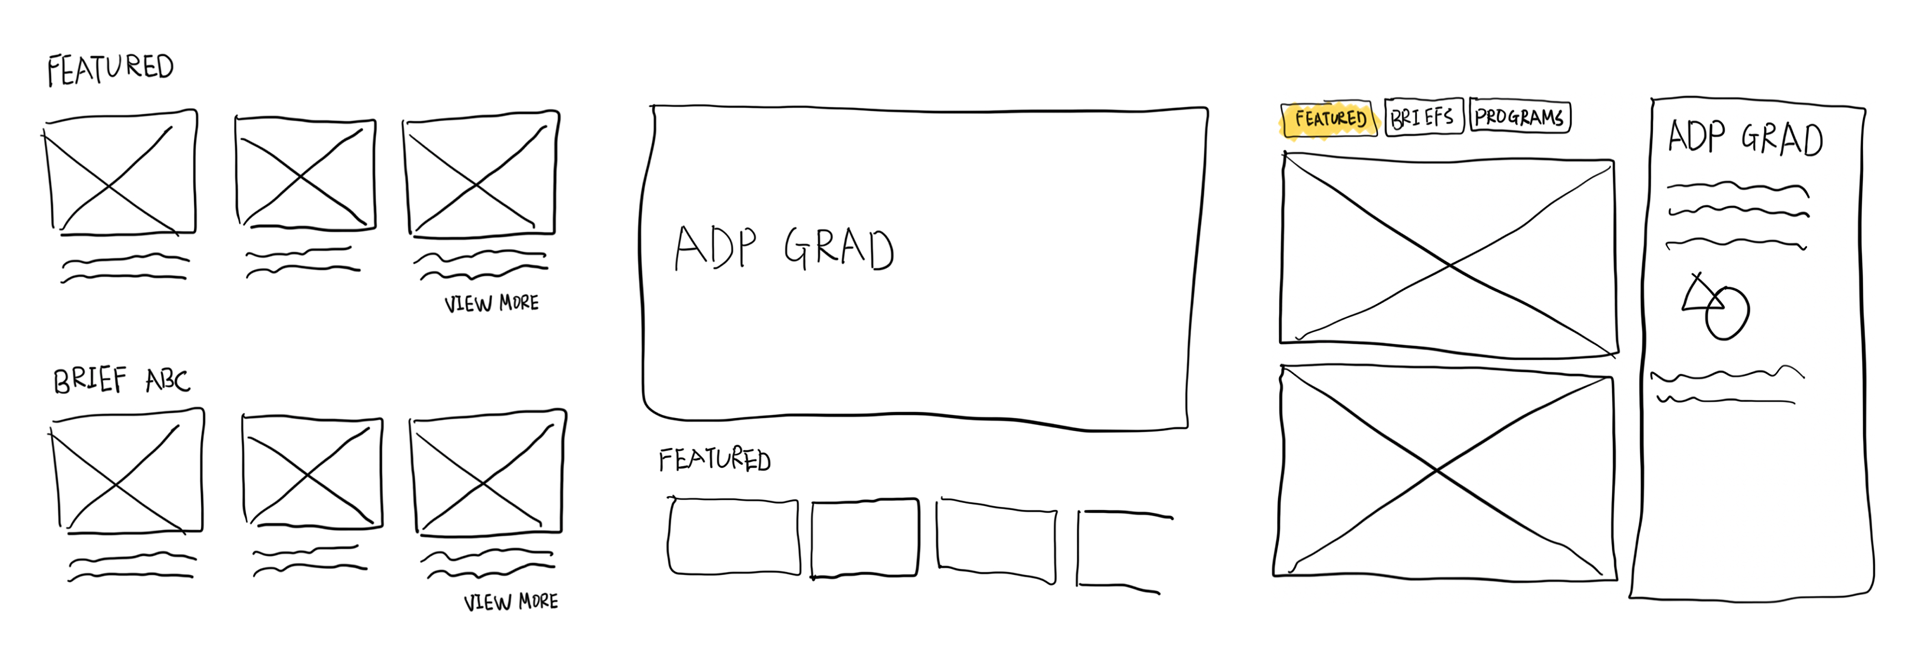 FEATURED
VIEW MORE
BRIEF ABC
VIEW MORE
ADP GRAD
FEATURED
FEATURED
BRIEFS
PROGRAMS
ADP GRAD